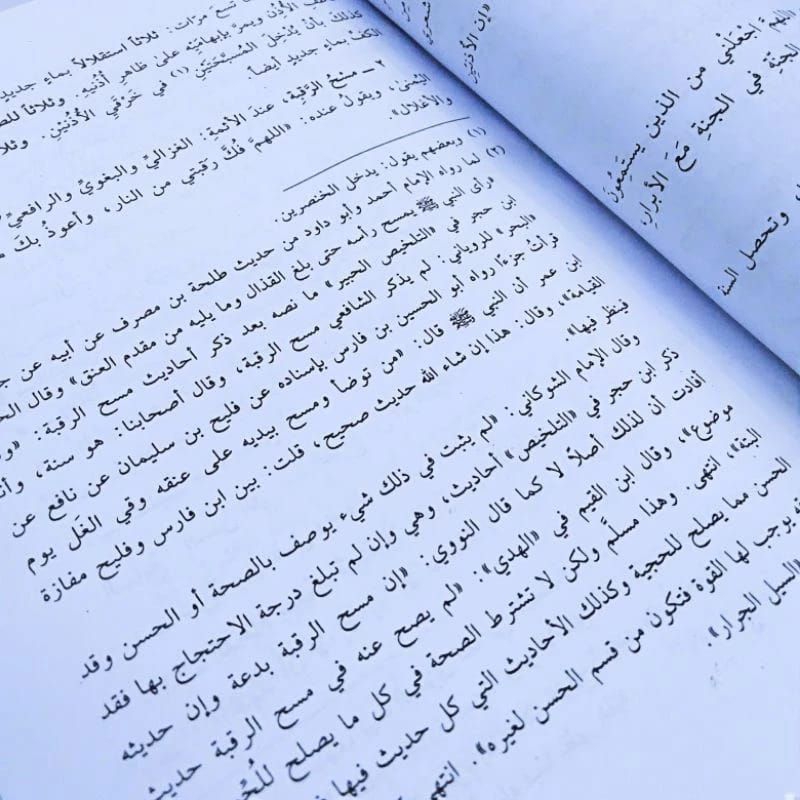 إن الأذنين
اللهمَّ اجْعَلْني من الذين يستمِعُونَ
الجنَّة في الجنةِ مَعَ الأبرارِ
، وتحصل السنة
تسعَ مرّات: ثلاثاً استقلالاً بماءٍ جديدٍ
الأُذُنِ ويمرُّ بإبهامَيْه على ظاهرِ أُذُنيهِ. وثلاثاً
كذلك بأنْ يُدْخِلَ المُسبِّحَتَيْنِ (١) في خَرْقَي الأُذُنَيْنِ. وثلاثاً
الكفَّ بماءٍ جديدٍ أيضاً.
٢ ــ مسْحُ الرَّقَبةِ، عندَ الأئمةِ: الغزاليِّ والبغويِّ والرافعيِّ
اليُمْنى، ويقولُ عنده: «اللهمَّ فُكَّ رقَبتي من النار، وأعوذُ بكَ
والأغلالِ».
(١) وبعضهم يقول: يدخل الخنصرين.
(٢) لما رواه الإمام أحمد وأبو داود من حديث طلحة بن مصرف عن أبيه عن
رأى النبي ﷺ يمسح رأسه حتى بلغ القذال وما يليه من مقدم العنق» وقال
ابن حجر في «التلخيص الحبير» ما نصه بعد ذكر أحاديث مسح الرقبة:
«البحر» للروياني: لم يذكر الشافعي مسح الرقبة، وقال أصحابنا: هو سنة،
قرأتُ جزءًا رواه أبو الحسين بن فارس بإسناده عن فليح بن سليمان عن نافع عن
ابن عمر أن النبي ﷺ قال: «من توضأ ومسح بيديه على عنقه وقي الغل يوم
القيامة»، وقال: هذا إن شاء الله حديث صحيح، قلت: بين ابن فارس وفليح مفازة
فينظر فيها».
وقال الإمام الشوكاني: «لم يثبت في ذلك شيء يوصف بالصحة أو الحسن وقد
ذكر ابن حجر في «التلخيص» أحاديث، وهي وإن لم تبلغ درجة الاحتجاج بها فقد
أفادت أن لذلك أصلًا لا كما قال النووي: «إن مسح الرقبة بدعة وإن حديثه
موضوع»، وقال ابن القيم في «الهدي»: «لم يصح عنه في مسح الرقبة حديث
البتة»، انتهى. وهذا مسلَّم ولكن لا تشترط الصحة في كل ما يصلح
الحسن مما يصلح للحجية وكذلك الأحاديث التي كل حديث فيها
يوجب لها القوة فتكون من قسم الحسن لغيره». انتهى
«السيل الجرار».